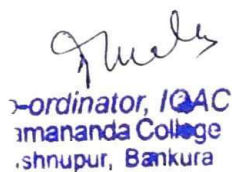 -ordinator, IQAC
mananda College
shnupur, Bankura